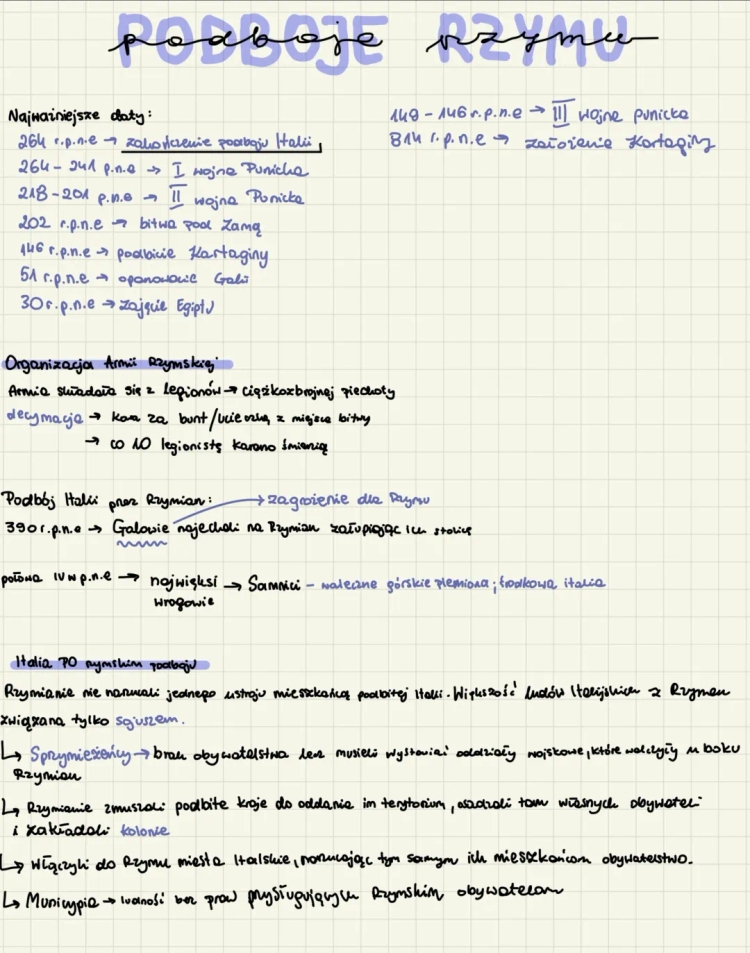 PODBOJE RZYMU
podboje rzymu
Najważniejsze daty:
264 r.p.n.e → zakończenie podboju Italii
264 – 241 p.n.e → I wojna Punicka
218 – 201 p.n.e → II wojna Punicka
202 r.p.n.e → bitwa pod Zamą
146 r.p.n.e → podbicie Kartaginy
51 r.p.n.e → opanowanie Galii
30 r.p.n.e → zajęcie Egiptu
149 – 146 r.p.n.e → III wojna punicka
814 r.p.n.e → założenie Kartaginy
Organizacja Armii Rzymskiej
Armia składała się z legionów → ciężkozbrojnej piechoty
decymacja → kara za bunt/ucieczkę z miejsca bitwy
→ co 10 legionistę karano śmiercią
Podbój Italii przez Rzymian: → zagrożenie dla Rzymu
390 r.p.n.e → Galowie najechali na Rzymian załupiając ich stolicę
połowa IV w p.n.e → najwięksi → Samnici – waleczne górskie plemiona; środkowa italia
wrogowie
Italia PO rzymskim podboju
Rzymianie nie narzucali jednego ustroju mieszkańcą podbitej Italii. Większość ludów Italijskich z Rzymem
związana tylko sojuszem.
↳ Sprzymieżeńcy → brak obywatelstwa lecz musieli wystawiać oddziały wojskowe, które walczyły u boku
Rzymian
↳ Rzymianie zmuszali podbite kraje do oddania im terytorium, osadzali tam własnych obywateli
i zakładali kolonie
↳ Włączyli do Rzymu miasta Italskie, narzucając tym samym ich mieszkańcom obywatelstwo.
↳ Municypia → ludność bez praw przysługujących Rzymskim obywatelom